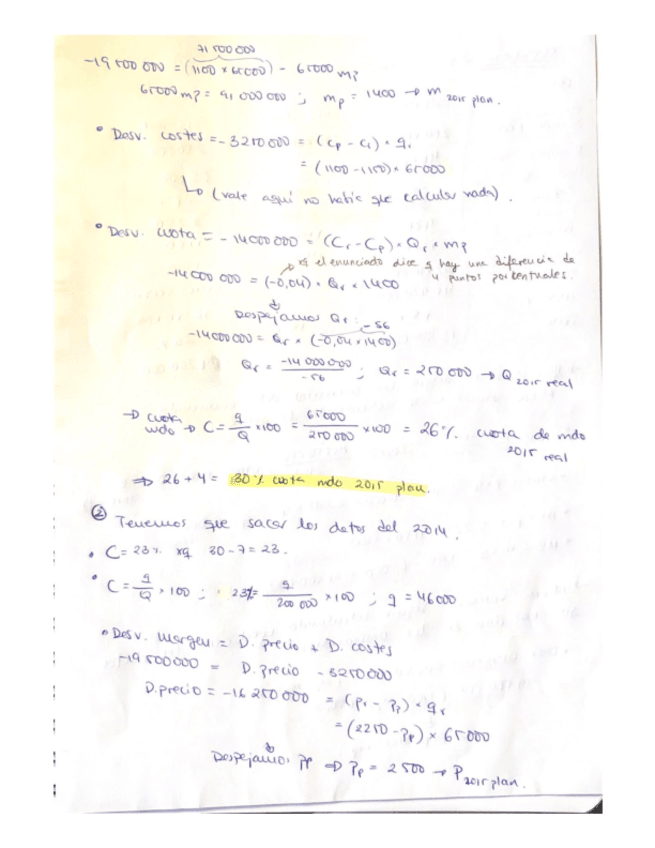 71 500 000
-19 500 000 = (1100 × 65000) - 65000 mp
65000 mp = 91 000 000 ; mp = 1400 → m 2015 plan.
• Desv. costes = - 3250000 = (cp - cr) · qr
= (1100 - 1150) × 65000
↳ (vale aquí no había que calcular nada).
• Desv. cuota = - 14000000 = (Cr - Cp) · Qr × mp
el enunciado dice q hay una diferencia de
4 puntos porcentuales.
-14 000 000 = (-0,04) · Qr × 1400
Despejamos Qr :
- 56
-14000000 = Qr × (-0,04 × 1400)
Qr = -14 000 000 / -56 ; Qr = 250 000 → Q 2015 real
→ cuota mdo → C = q/Q × 100 = 65000/250 000 × 100 = 26 %. cuota de mdo
2015 real
⇒ 26 + 4 = 30 % cuota mdo 2015 plan.
② Tenemos que sacar los datos del 2014.
• C = 23 % xq 30 - 7 = 23.
• C = q/Q × 100 ; 23% = q/200 000 × 100 ; q = 46000
• Desv. margen = D. precio + D. costes
-19 500000 = D. precio - 3250000
D. precio = -16 250 000 = (Pr - Pp) · qr
= (2250 - Pp) × 65000
Despejamos Pp ⇒ Pp = 2500 → P 2015 plan.